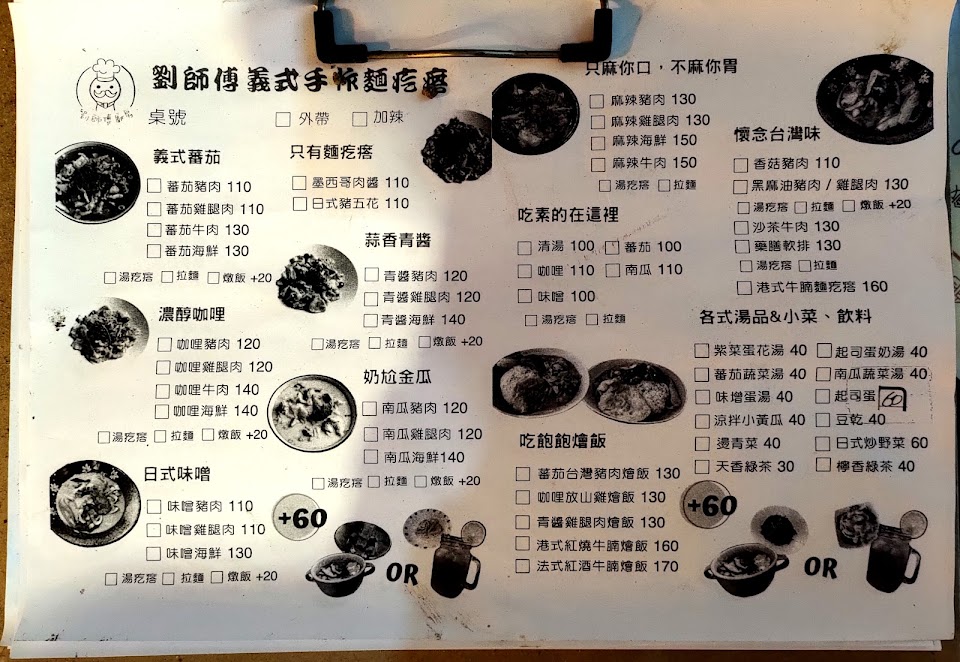 劉師傅義式手作麵疙瘩
劉師傅
桌號 □ 外帶 □ 加辣
義式蕃茄
□ 蕃茄豬肉 110
□ 蕃茄雞腿肉 110
□ 蕃茄牛肉 130
□ 蕃茄海鮮 130
□ 湯疙瘩 □ 拉麵 □ 燉飯 +20
濃醇咖哩
□ 咖哩豬肉 120
□ 咖哩雞腿肉 120
□ 咖哩牛肉 140
□ 咖哩海鮮 140
□ 湯疙瘩 □ 拉麵 □ 燉飯 +20
日式味噌
□ 味噌豬肉 110
□ 味噌雞腿肉 110
□ 味噌海鮮 130
□ 湯疙瘩 □ 拉麵 □ 燉飯 +20
只有麵疙瘩
□ 墨西哥肉醬 110
□ 日式豬五花 110
蒜香青醬
□ 青醬豬肉 120
□ 青醬雞腿肉 120
□ 青醬海鮮 140
□ 湯疙瘩 □ 拉麵 □ 燉飯 +20
奶尬金瓜
□ 南瓜豬肉 120
□ 南瓜雞腿肉 120
□ 南瓜海鮮140
□ 湯疙瘩 □ 拉麵 □ 燉飯 +20
+60
OR
只麻你口，不麻你胃
□ 麻辣豬肉 130
□ 麻辣雞腿肉 130
□ 麻辣海鮮 150
□ 麻辣牛肉 150
□ 湯疙瘩 □ 拉麵
吃素的在這裡
□ 清湯 100 □ 蕃茄 100
□ 咖哩 110 □ 南瓜 110
□ 味噌 100
□ 湯疙瘩 □ 拉麵
吃飽飽燴飯
□ 蕃茄台灣豬肉燴飯 130
□ 咖哩放山雞燴飯 130
□ 青醬雞腿肉燴飯 130
□ 港式紅燒牛腩燴飯 160
□ 法式紅酒牛腩燴飯 170
懷念台灣味
□ 香菇豬肉 110
□ 黑麻油豬肉 / 雞腿肉 130
□ 湯疙瘩 □ 拉麵 □ 燉飯 +20
□ 沙茶牛肉 130
□ 藥膳軟排 130
□ 湯疙瘩 □ 拉麵
□ 港式牛腩麵疙瘩 160
各式湯品&小菜、飲料
□ 紫菜蛋花湯 40 □ 起司蛋奶湯 40
□ 蕃茄蔬菜湯 40 □ 南瓜蔬菜湯 40
□ 味增蛋湯 40 □ 起司蛋
□ 涼拌小黃瓜 40 □ 豆乾 40
□ 燙青菜 40 □ 日式炒野菜 60
□ 天香綠茶 30 □ 檸香綠茶 40
+60
OR